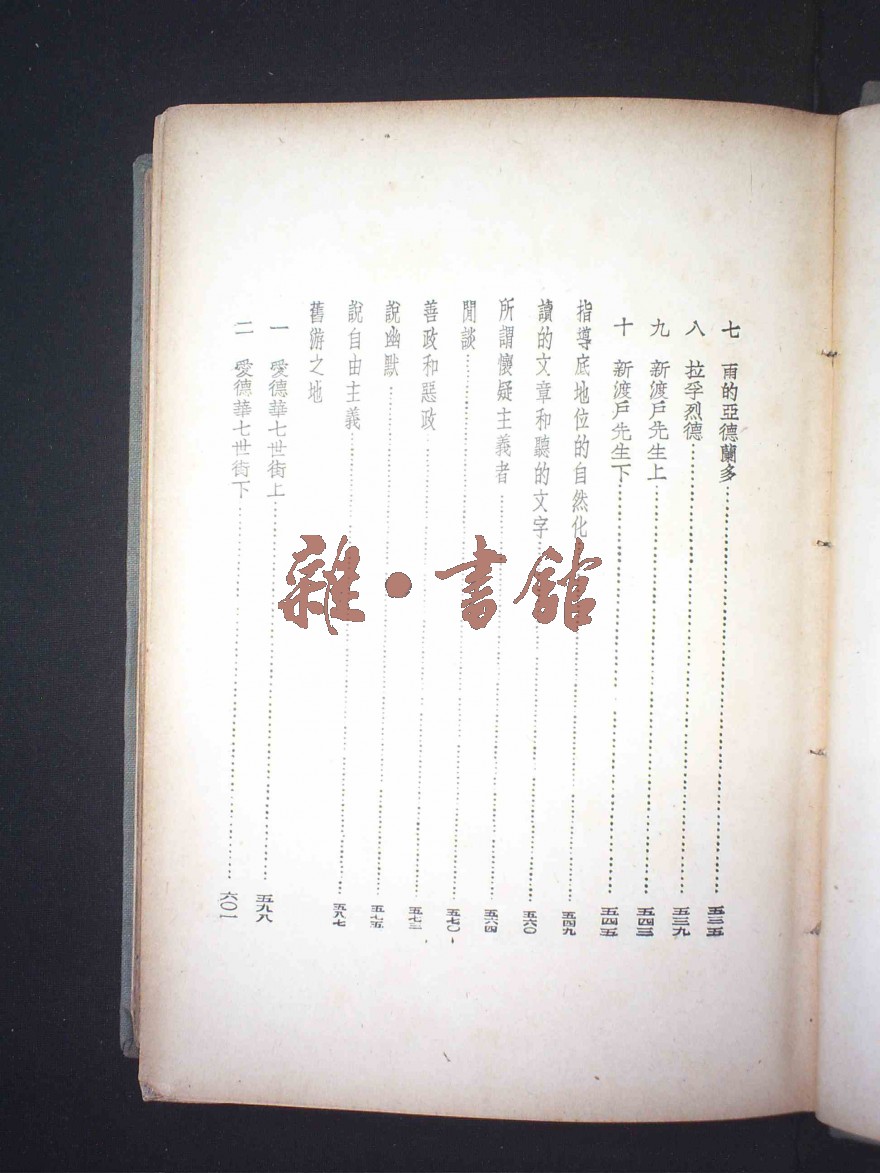 七 雨的亞德蘭多……五三五
八 拉孚烈德……五三九
九 新渡戶先生上……五四三
十 新渡戶先生下……五四五
指導底地位的自然化……五四九
讀的文章和聽的文字……五六〇
所謂懷疑主義者……五六四
閒談……五七〇
善政和惡政……五七三
說幽默……五七五
說自由主義……五八七
舊游之地
一 愛德華七世街上……五九八
二 愛德華七世街下……六〇一
雜·書館